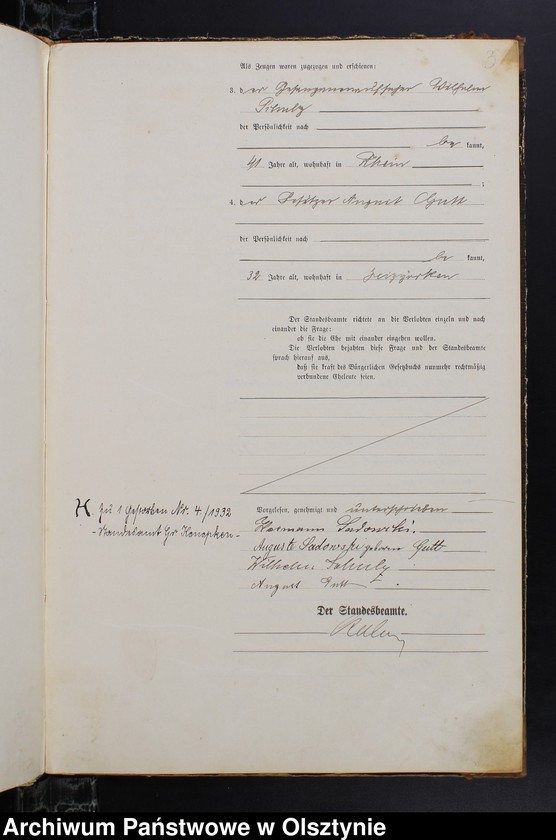 3
Als Zeugen waren zugezogen und erschienen:
3. der Gefangenenaufseher Wilhelm
Schulz
der Persönlichkeit nach
be kannt,
41 Jahre alt, wohnhaft in Rhein
;
4. der Besitzer August Gutt
der Persönlichkeit nach
be kannt,
32 Jahre alt, wohnhaft in
Der Standesbeamte richtete an die Verlobten einzeln und nach
einander die Frage:
ob sie die Ehe mit einander eingehen wollen.
Die Verlobten bejahten diese Frage und der Standesbeamte
sprach hierauf aus,
daß sie kraft des Bürgerlichen Gesetzbuchs nunmehr rechtmäßig
verbundene Eheleute seien.
H zu 1 Gestorben Nr. 4./1932
- Standesamt Gr Konopken -
Vorgelesen, genehmigt und unterschrieben
Hermann Sadowski.
Auguste Sadowski geboren Gutt
Wilhelm Schulz
August Gutt
Der Standesbeamte.
Archiwum Państwowe w Olsztynie